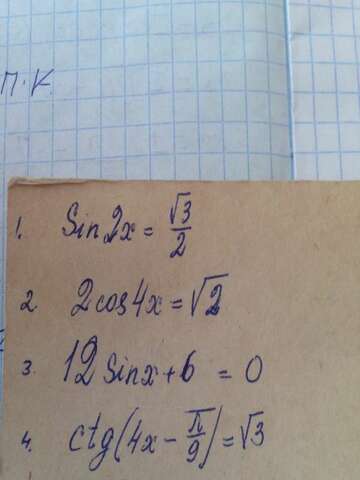 п.к.
1. Sin2x = √3/2
2 2cos4x = √2
3. 12 sinx + 6 = 0
4. ctg(4x − π/9) = √3